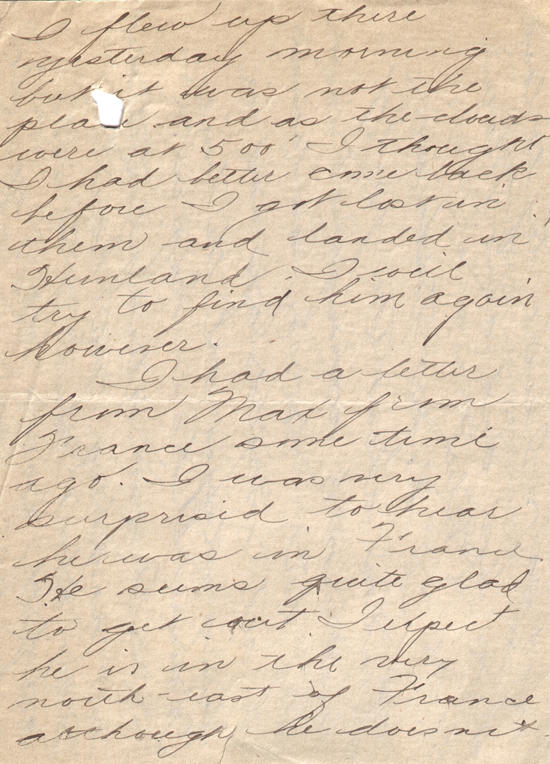 I flew up there
yesterday morning
but it was not the
place and as the clouds
were at 500' I thought
I had better come back
before I got lost in
them and landed in
Hunland. I will
try to find him again
however.
I had a letter
from Max from
France some time
ago. I was very
surprised to hear
he was in France
He seems quite glad
to get out I expect
he is in the very
north-east of France
although he doesn't